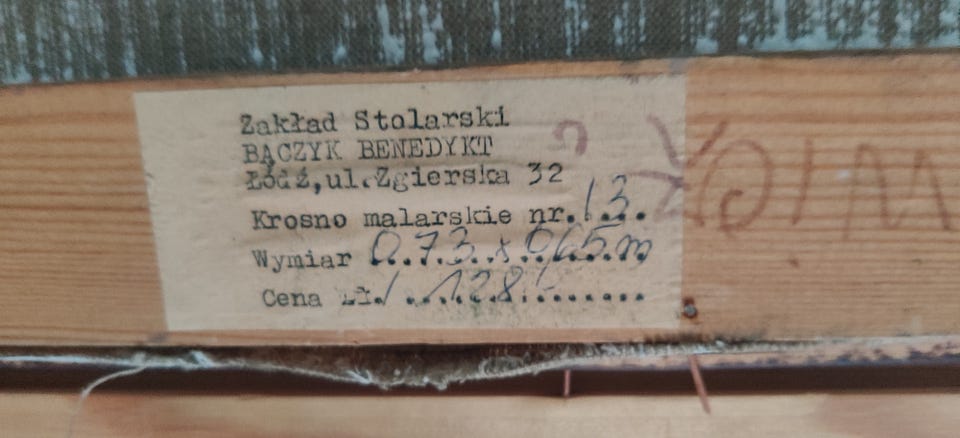 Zakład Stolarski
BĄCZYK BENEDYKT
Łódź,ul.Zgierska 32
Krosno malarskie nr.13...
Wymiar 0.73 x 0,65 m
Cena zł. 128